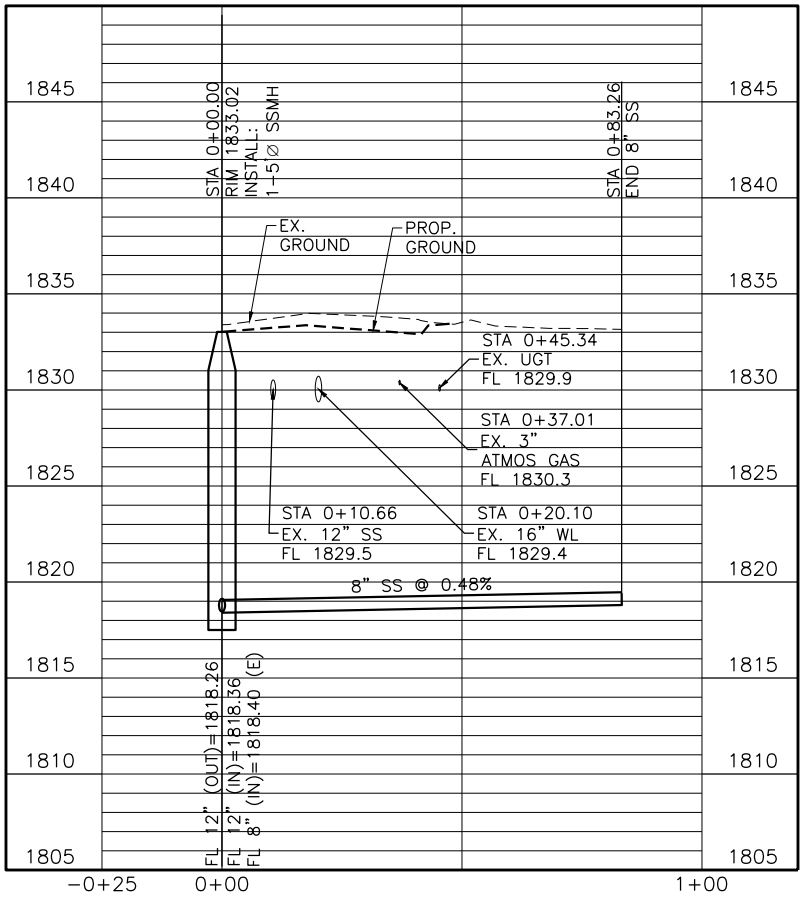 1845
1840
1835
1830
1825
1820
1815
1810
1805
STA 0+00.00
RIM 1833.02
INSTALL:
1-5'Ø SSMH
STA 0+83.26
END 8" SS
EX.
GROUND
PROP.
GROUND
STA 0+45.34
EX. UGT
FL 1829.9
STA 0+37.01
EX. 3"
ATMOS GAS
FL 1830.3
STA 0+10.66
EX. 12" SS
FL 1829.5
STA 0+20.10
EX. 16" WL
FL 1829.4
8" SS @ 0.48%
FL 12" (OUT)=1818.26
FL 12" (IN)=1818.36
FL 8" (IN)=1818.40 (E)
1845
1840
1835
1830
1825
1820
1815
1810
1805
-0+25
0+00
1+00